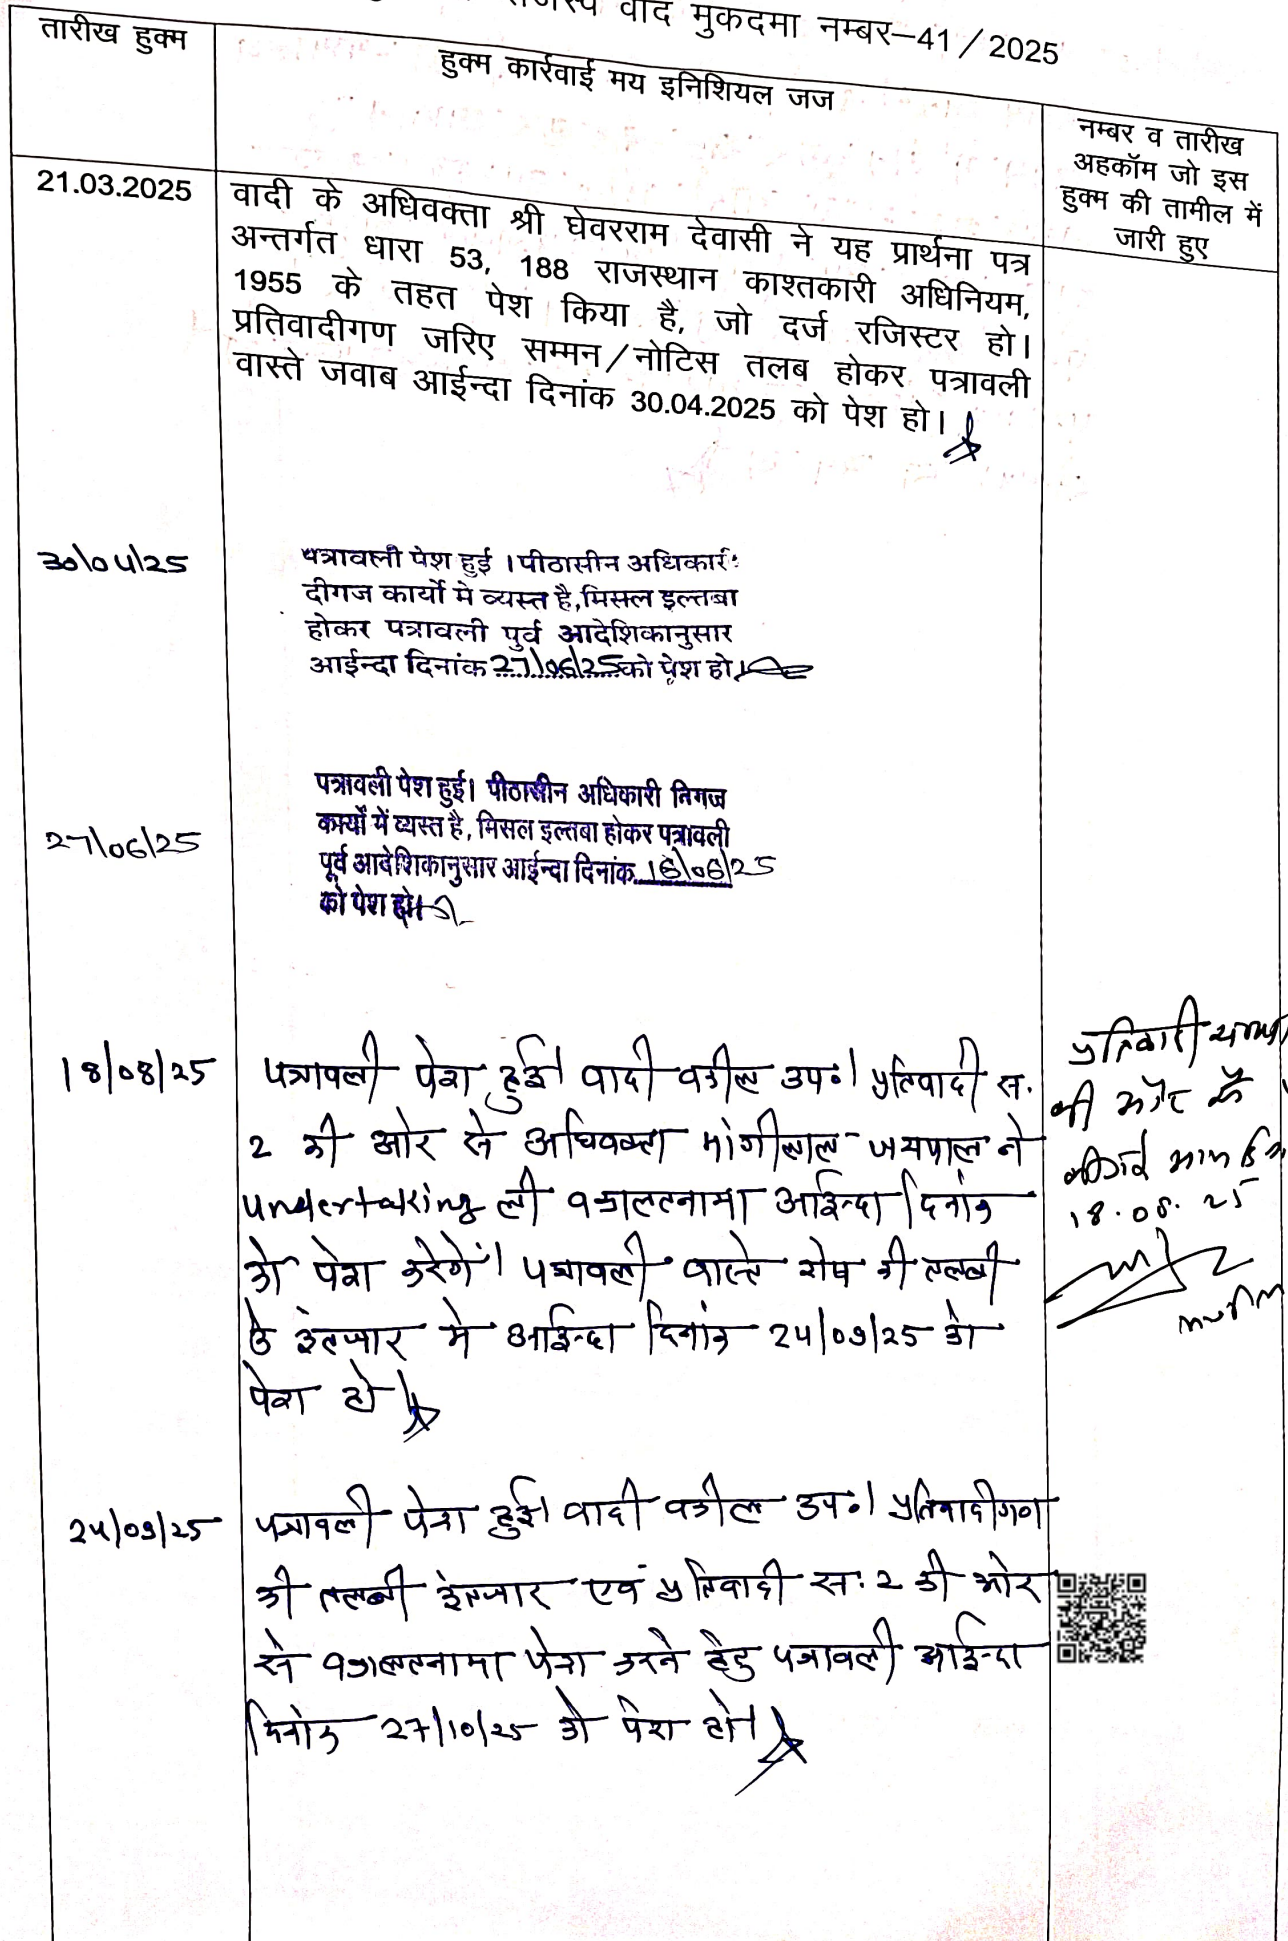 वाद मुकदमा नम्बर–41/2025
तारीख हुक्म
हुक्म कार्रवाई मय इनिशियल जज
नम्बर व तारीख
अहकॉम जो इस
हुक्म की तामील में
जारी हुए
21.03.2025
वादी के अधिवक्ता श्री घेवरराम देवासी ने यह प्रार्थना पत्र
अन्तर्गत धारा 53, 188 राजस्थान काश्तकारी अधिनियम,
1955 के तहत पेश किया है, जो दर्ज रजिस्टर हो।
प्रतिवादीगण जरिए सम्मन/नोटिस तलब होकर पत्रावली
वास्ते जवाब आईन्दा दिनांक 30.04.2025 को पेश हो।
30/04/25
पत्रावली पेश हुई । पीठासीन अधिकारी
दीगज कार्यो मे व्यस्त है, मिसल इल्तबा
होकर पत्रावली पुर्व आदेशिकानुसार
आईन्दा दिनांक 27/06/25 को पेश हो।
27/06/25
पत्रावली पेश हुई। पीठासीन अधिकारी तिगज
कार्यों में व्यस्त है, मिसल इल्तबा होकर पत्रावली
पूर्व आदेशिकानुसार आईन्दा दिनांक /25
को पेश हो।
18/08/25
पत्रावली पेश हुई। वादी वकील उप०। प्रतिवादी स.
2 की ओर से अधिवक्ता मांगीलाल जयपाल ने
undertaking ली वकालतनामा आईन्दा दिनांक
को पेश करेगें। पत्रावली वास्ते शेष की तलबी
के इंतजार मे आईन्दा दिनांक 24/09/25 को
पेश हो।
प्रतिवादी
की ओर से
18.08.25
24/09/25
पत्रावली पेश हुई। वादी वकील उप०। प्रतिवादीगण
की तलबी इंतजार एवं प्रतिवादी स. 2 की ओर
से वकालतनामा पेश करने हेतु पत्रावली आईन्दा
दिनांक 27/10/25 को पेश हो।